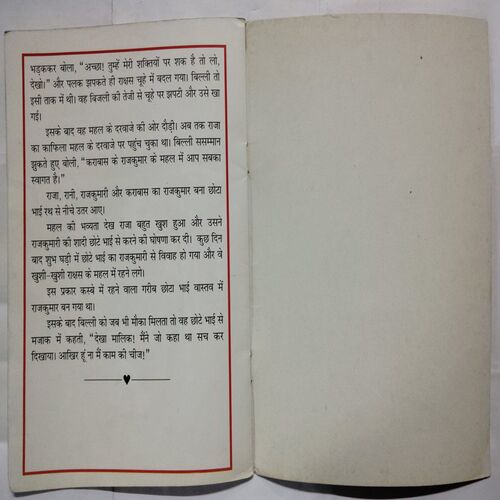 भड़ककर बोला, “अच्छा! तुम्हें मेरी शक्तियों पर शक है तो लो,
देखो।” और पलक झपकते ही राक्षस चूहे में बदल गया। बिल्ली तो
इसी ताक में थी। वह बिजली की तेजी से चूहे पर झपटी और उसे खा
गई।
इसके बाद वह महल के दरवाजे की ओर दौड़ी। अब तक राजा
का काफिला महल के दरवाजे पर पहुंच चुका था। बिल्ली ससम्मान
झुकते हुए बोली, “कराबास के राजकुमार के महल में आप सबका
स्वागत है।”
राजा, रानी, राजकुमारी और कराबास का राजकुमार बना छोटा
भाई रथ से नीचे उतर आए।
महल की भव्यता देख राजा बहुत खुश हुआ और उसने
राजकुमारी की शादी छोटे भाई से करने की घोषणा कर दी। कुछ दिन
बाद शुभ घड़ी में छोटे भाई का राजकुमारी से विवाह हो गया और वे
खुशी-खुशी राक्षस के महल में रहने लगे।
इस प्रकार कस्बे में रहने वाला गरीब छोटा भाई वास्तव में
राजकुमार बन गया था।
इसके बाद बिल्ली को जब भी मौका मिलता तो वह छोटे भाई से
मजाक में कहती, “देखा मालिक! मैंने जो कहा था सच कर
दिखाया। आखिर हूं ना मैं काम की चीज!”